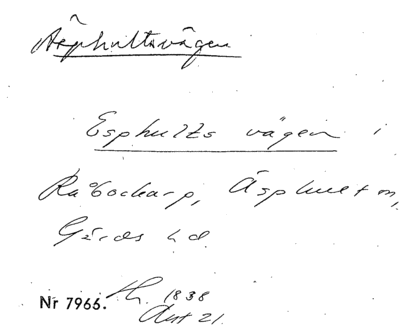 Äsphultsvägen
Esphults vägen i
Råbockarp, Äsphult sn,
Gärds hd.
Nr 7966. 1838
Akt 21.